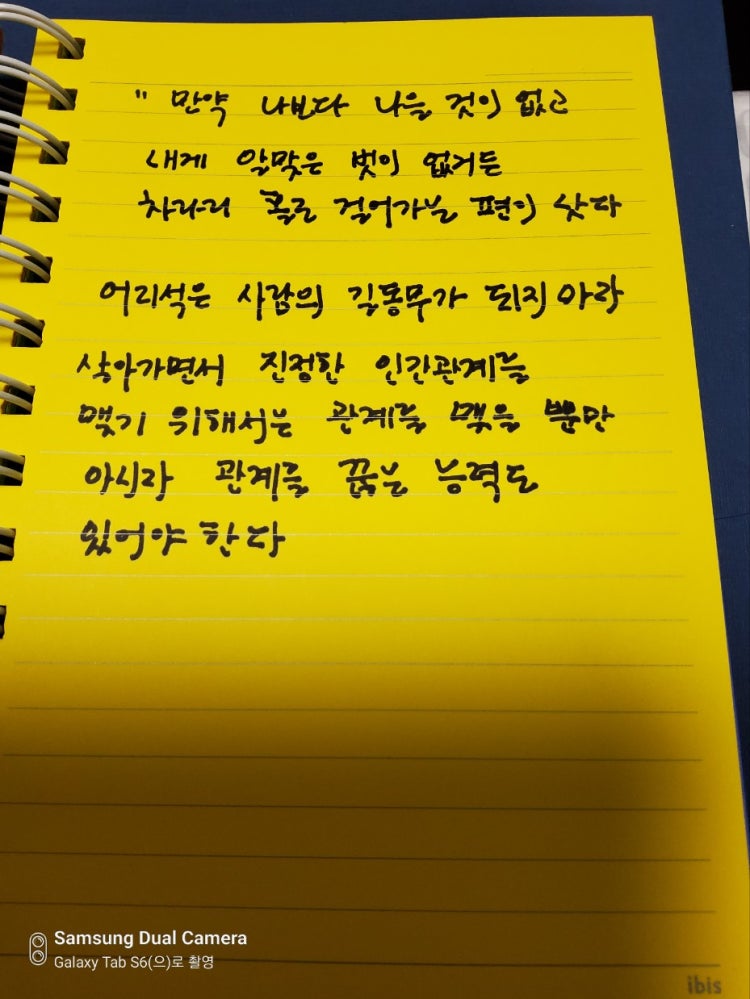 " 만약 나보다 나을 것이 없고
내게 알맞은 벗이 없거든
차라리 홀로 걸어가는 편이 낫다
어리석은 사람의 길동무가 되지 아라
살아가면서 진정한 인간관계를
맺기 위해서는 관계를 맺을 뿐만
아시라 관계를 끊는 능력도
있어야 한다
Samsung Dual Camera
Galaxy Tab S6(으)로 촬영
ibis